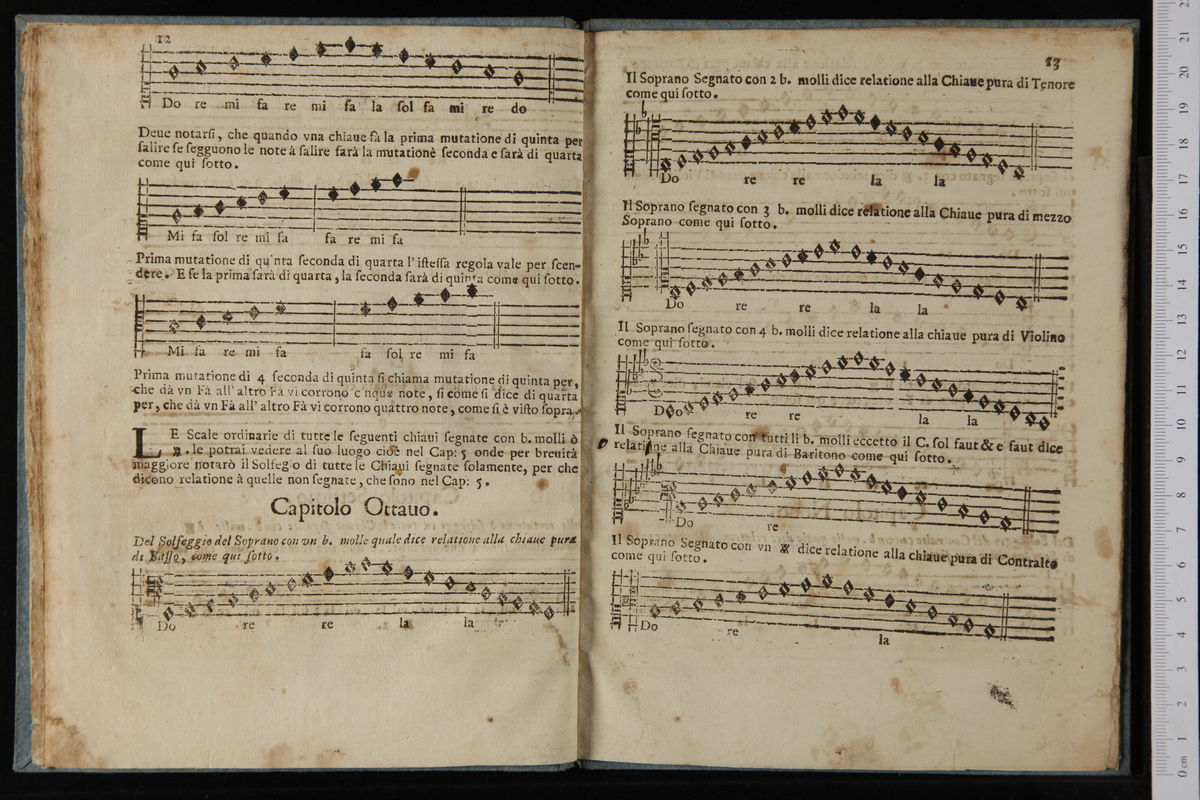 12
Do re mi fa re mi fa la sol fa mi re do
Deue notarſi, che quando vna chiaue fà la prima mutatione di quinta per
ſalire ſe ſegguono le note à ſalire farà la mutationè ſeconda e ſarà di quarta
come qui ſotto.
Mi fa ſol re mi fa fa re mi fa
Prima mutatione di qu'nta ſeconda di quarta l'iſteſſa regola vale per ſcen-
dere. E ſe la prima ſarà di quarta, la ſeconda ſarà di quinta come qui ſotto.
Mi fa re mi fa fa ſol re mi fa
Prima mutatione di 4 ſeconda di quinta ſi chiama mutatione di quinta per,
che dà vn Fà all'altro Fà vi corrono c nque note, ſi come ſi dice di quarta
per, che dà vn Fà all'altro Fà vi corrono quattro note, come ſi è viſto ſopra.
LE Scale ordinarie di tutte le ſeguenti chiaui ſegnate con b. molli ò
. le potrai vedere al ſuo luogo cioè nel Cap: 5 onde per breuità
maggiore notarò il Solfeg o di tutte le Chiaui ſegnate ſolamente, per che
dicono relatione à quelle non ſegnate, che ſono nel Cap: 5.
Capitolo Ottauo.
Del Solfeggio del Soprano con vn b. molle quale dice relatione alla chiaue pura
di Baſſo, come qui ſotto.
Do re re la la
13
Il Soprano Segnato con 2 b. molli dice relatione alla Chiaue pura di Tenore
come qui ſotto.
Do re re la la
Il Soprano ſegnato con 3 b. molli dice relatione alla Chiaue pura di mezzo
Soprano come qui ſotto.
Do re re la la
Il Soprano ſegnato con 4 b. molli dice relatione alla chiaue pura di Violino
come qui ſotto.
Do re re la la
Il Soprano ſegnato con tutti li b. molli eccetto il C. ſol faut & e faut dice
relatione alla Chiaue pura di Baritono come qui ſotto.
Do re
Il Soprano Segnato con vn dice relatione alla chiaue pura di Contralto
come qui ſotto.
Do re la
0 cm 1 2 3 4 5 6 7 8 9 10 11 12 13 14 15 16 17 18 19 20 21